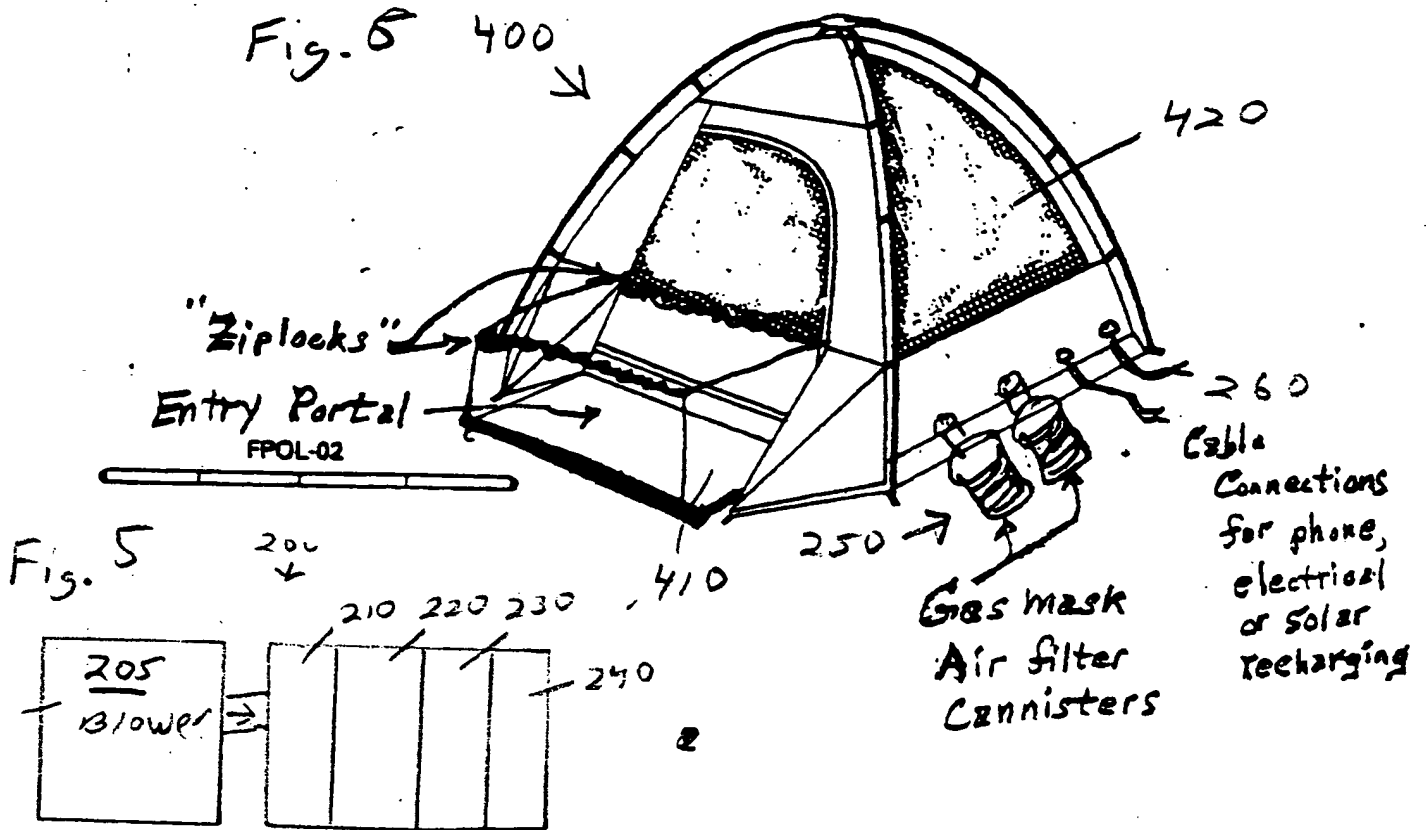 Fig. 6 400
420
"Ziplocks"
Entry Portal
FPOL-02
260
Cable
Connections
for phone,
electrical
or solar
recharging
250
Gas mask
Air filter
Cannisters
410
Fig. 5
200
210 220 230
240
205
Blower